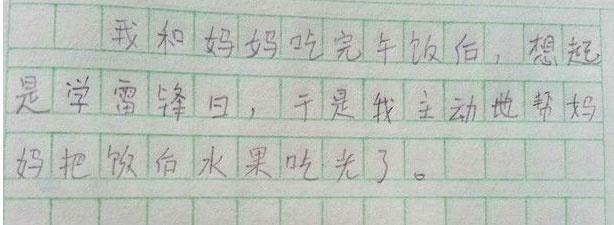 我和妈妈吃完午饭后，想起
是学雷锋日，于是我主动地帮妈
妈把饭后水果吃光了。